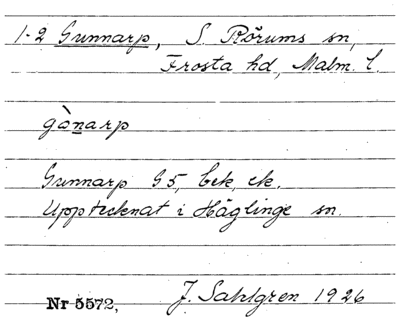 1-2 Gunnarp, S. Rörums sn,
Frosta hd, Malm. l.
gònarp
Gunnarp G5, bek, ek.
Upptecknat i Häglinge sn.
Nr 5572, J. Sahlgren 1926